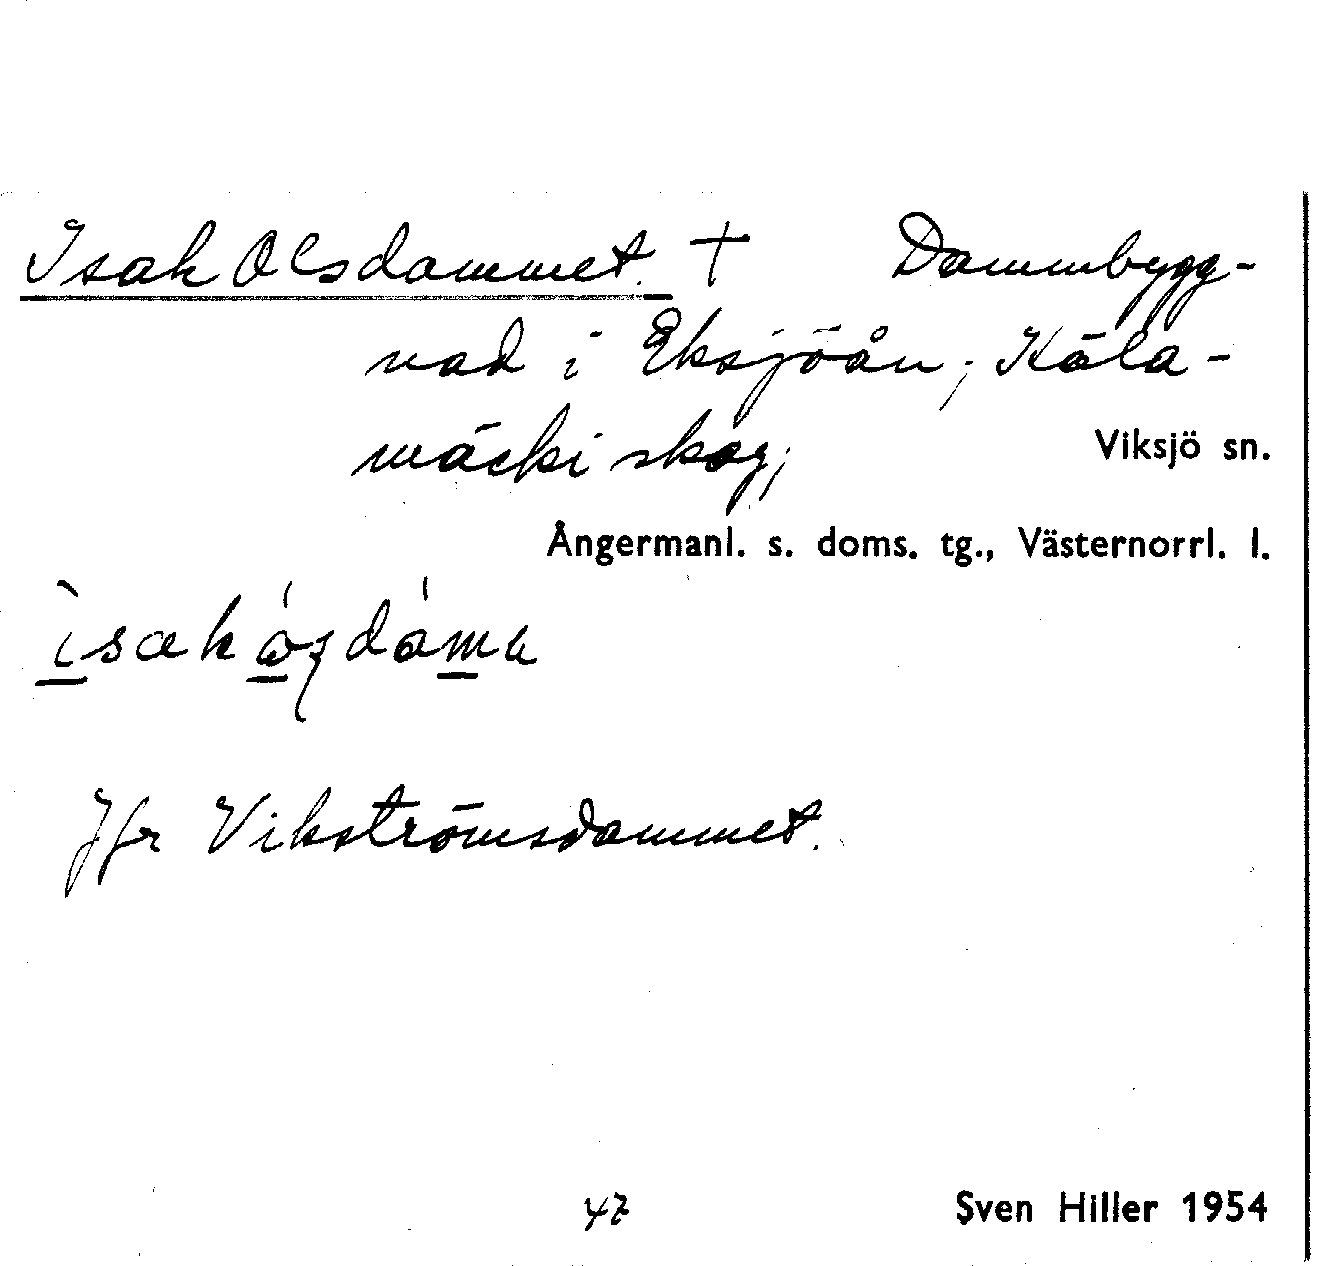 Isak Olsdammet. + Dammbygg-
nad i Eksjöån; Käla-
mäcki skog;
Viksjö sn.
Ångermanl. s. doms. tg., Västernorrl. l.
Jfr Vikströmsdammet.
47 Sven Hiller 1954